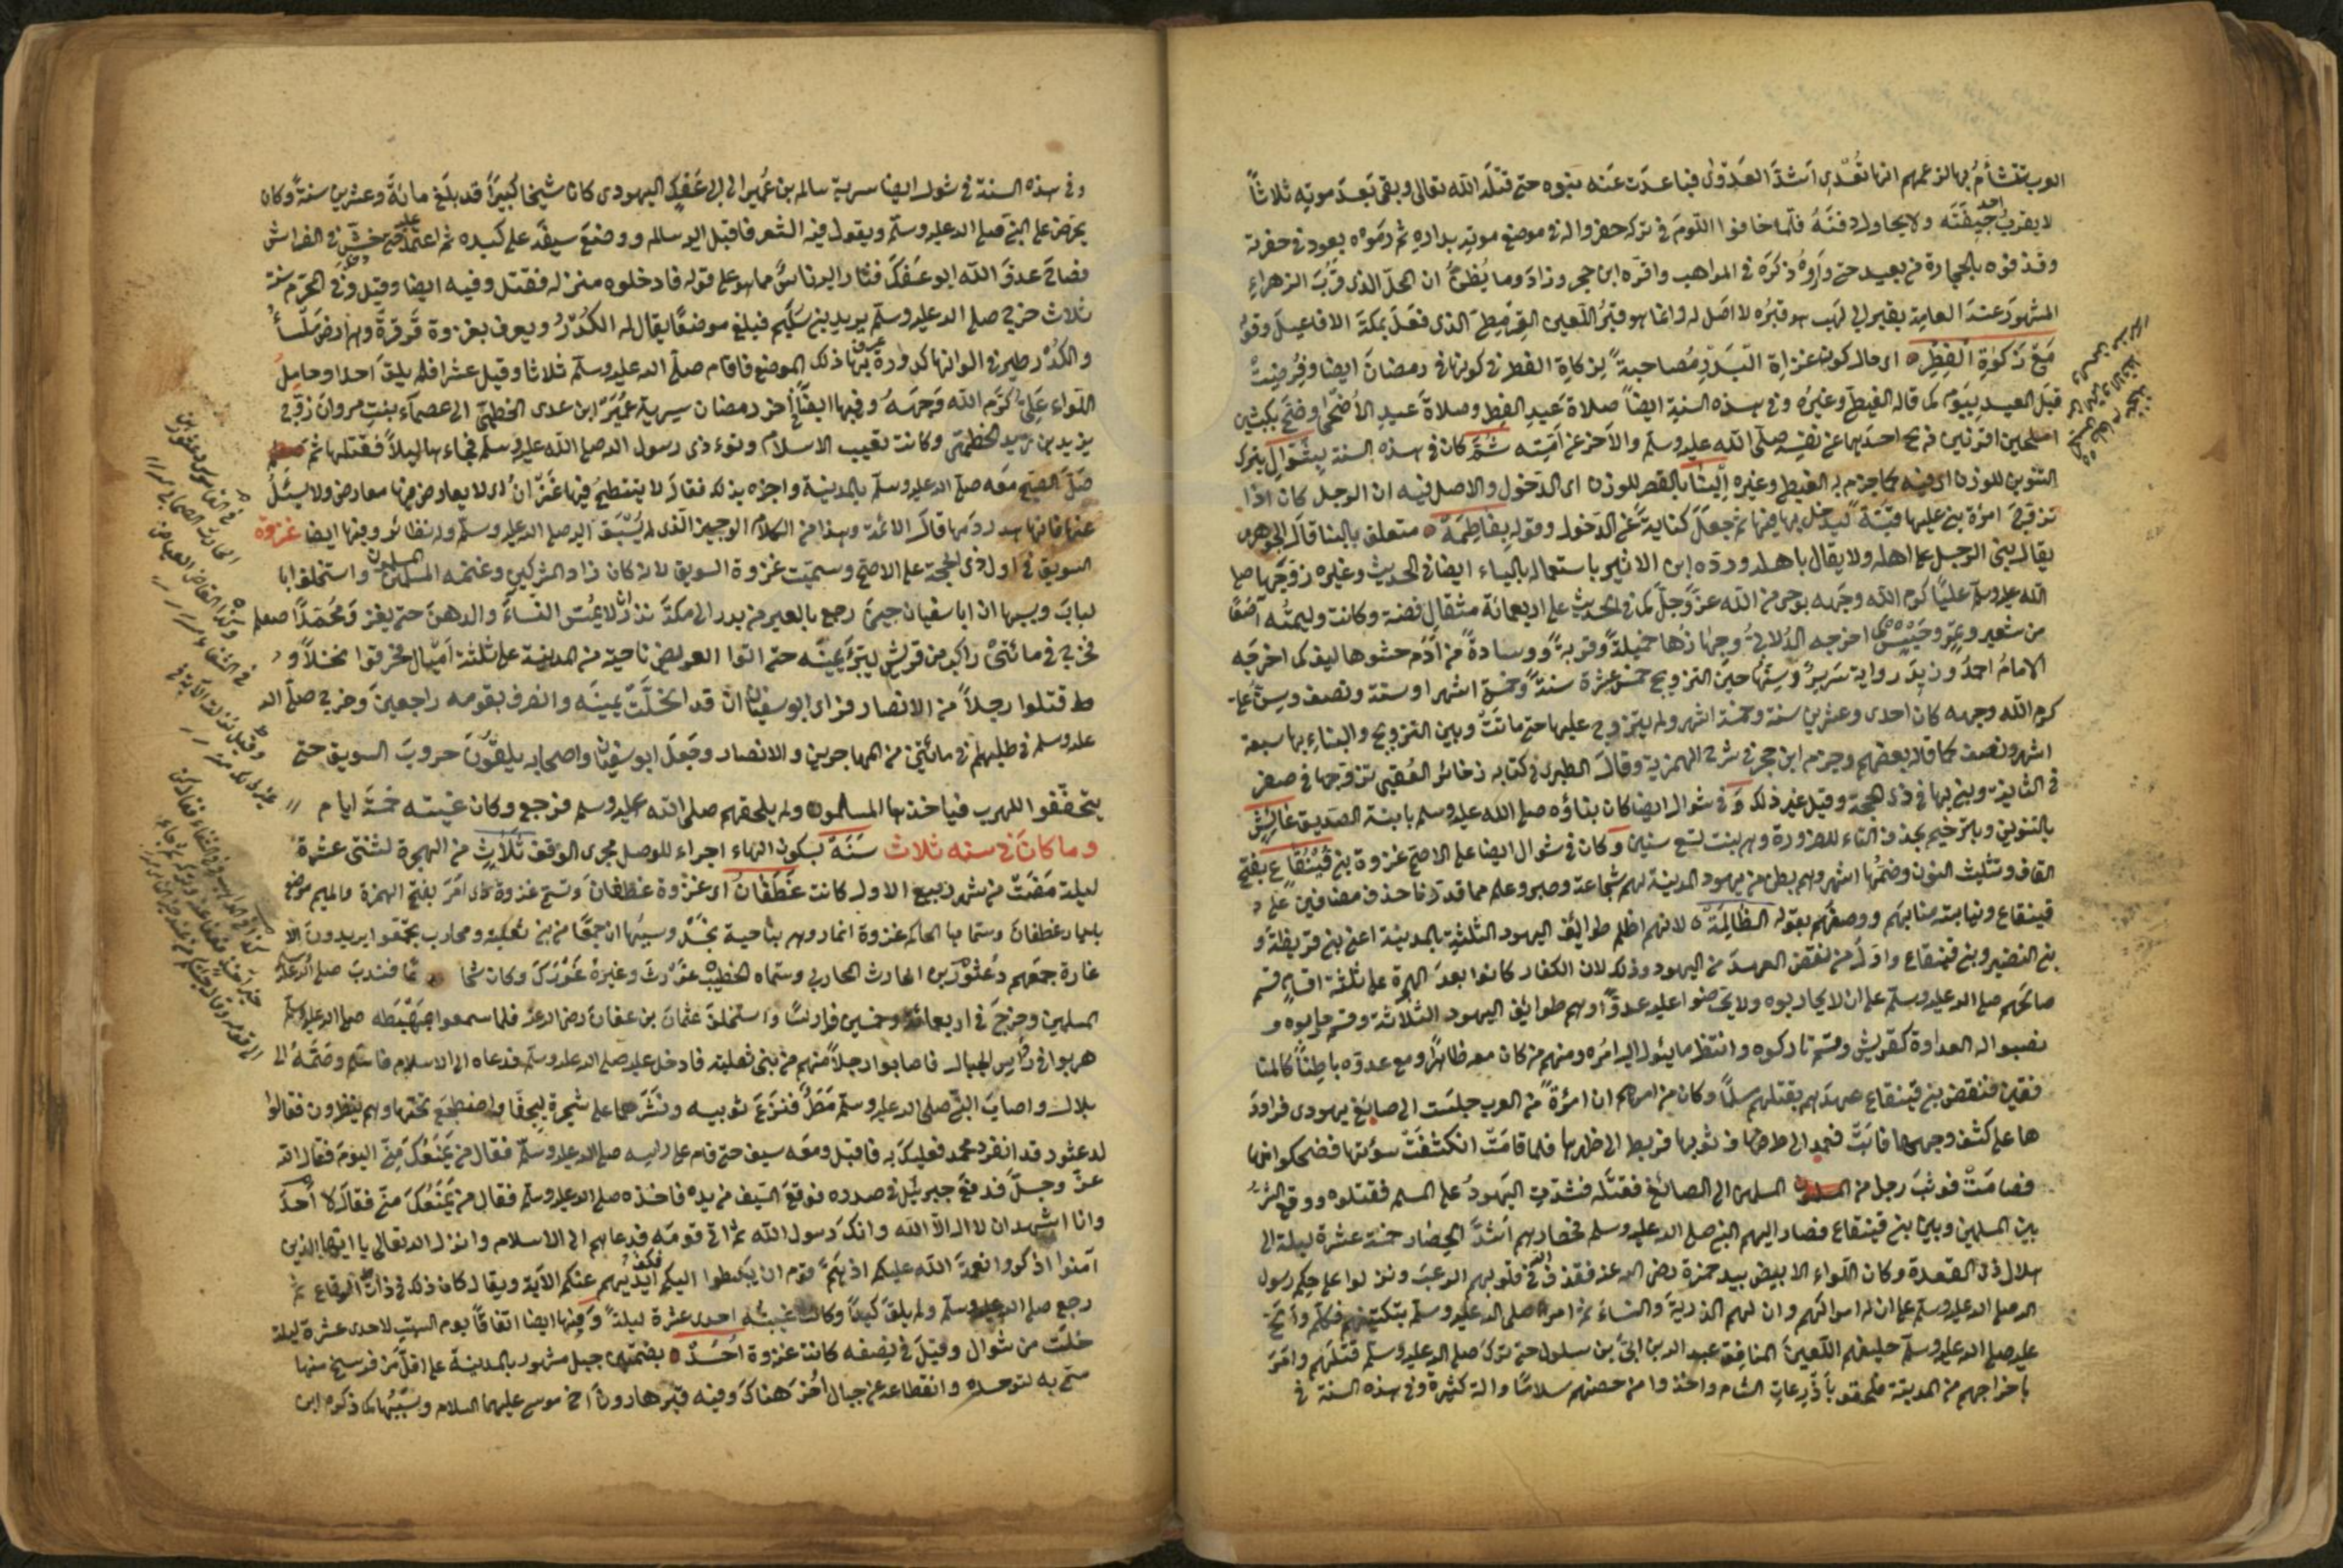 العرب تتشأم بها لزعمهم انها تُعْدِى اشدّ العَدْوٰى فتباعدت عنه بنوه حتى قتله الله تعالى وبقى بَعدَ موته ثلاثاً
لا يقرب احد جيفَتَه ولا يحاول دفنَهُ فلما خافوا اللّومَ فى تركه حفروا له فى موضع موته بداره ثم دفعوه بعود فى حفرته
وقذفوه بالحجارة من بعيد حتى واروه ذكره فى المواهب واقرّه ابن حجر وزاد وما يُظنّ ان المحلّ الذى قربَ الزهراءِ
المشهور عند العامة بقبر ابى لهب هو قبره لا اصل له وانما هو قبر اللّعين القرمِطِى الذى فعل بمكة الافاعيل وقوله
مَعْ زَكٰوةِ الْفِطْرِ اى حال كون غزاة البدر مُصاحبةً لزكاة الفطر فى كونها فى رمضانَ ايضا وفُرِضتْ
قبل العيد بيوم كما قاله الغيطى وغيره وفى هذه السنة ايضاً صلاة عيدِ الفطر وصلاة عيدِ الأضحى وضحّى بكبشين
املحين اقرنين ذبح احدهما عن نفسه صلى الله عليه وسلم والاخر عن امته ثُمَّ كان فى هذه السنة بِشَوّالٍ بترك
التنوين للوزن اى فيه كما جزم به الغيطى وغيره اِلْبِنَا بالقصر للوزن اى الدخول والاصل فيه ان الرجل كان اذا
تزوّج امرأة بنى عليها قبّة ليدخل بها فيها ثم جعل كنايةً عن الدخول وقوله بِفَاطِمَةْ متعلق بالبنا قال الجوهرى
يقال بنى الرجل على اهله ولا يقال باهله وردّه ابن الاثير باستعماله بالباء ايضا فى الحديث وغيره زوّجها صلى
الله عليه وسلم عليًّا كرم الله وجهه بوحى من الله عزّ وجلّ كما فى الحديث على اربعمائة مثقال فضة وكانت وليمتُه آصُعًا
من شعير وتمرٍ وحَيْسٍ كما اخرجه الدولابى وجهازها خميلةً وقربةً ووسادةً من أدَمٍ حشوها ليف كما اخرجه
الامام احمد وزيد رواية سَرير وسنّها حين التزويج خمس عشرة سنةً وخمسة اشهر او ستة ونصف وسن على
كرم الله وجهه كان احدى وعشرين سنة وخمسة اشهر ولم يتزوج عليها حتى ماتت وبين التزويج والبناء بها سبعة
اشهر ونصف كما قاله بعضهم وجزم ابن حجر فى شرح الهمزية وقال الطبرى فى كتابه ذخائر العُقبى تزوجها فى صفر
فى الثانية وبنى بها فى ذى الحجة وقيل غير ذلك وَ فى شوال ايضا كان بناؤه صلى الله عليه وسلم بابنة الصديق عائِش
بالتنوين وبالترخيم بحذف التاء للضرورة وهى بنت تسع سنين وكان فى شوال ايضا على الاصح غزوة بنى قَيْنُقَاعٍ بفتح
القاف وتثليث النون وضمّها اشهر وهم بطن من يهود المدينة لهم شجاعة وصبر وعلم مما قدرنا حذف مضافين على
قينقاع ونيابته منابهم ووصفهم بقوله الظَّالِمَةْ لانهم اظلم طوائف اليهود الثلثة بالمدينة اعنى بنى قريظة و
بنى النضير وبنى قينقاع واوّل من نقض العهد من اليهود وذلك لان الكفار كانوا بعد الهجرة على ثلثة اقسام قسم
صالحهم صلى الله عليه وسلم على ان لا يحاربوه ولا يحرضوا عليه عدوًّا وهم طوائف اليهود الثلاثة وقسم حاربوه و
نصبوا له العداوة كقريش وقسم تاركوه وانتظر ما يئول اليه امره ومنهم من كان معه ظاهرًا ومع عدوه باطِنًا كالمنا
فقين فنقض بنى قينقاع عهدهم بقتلهم سلمًا وكان من امرهم ان امرأةً من العرب جلست الى صائغ يهودى فراود
ها على كشف وجهها فابَتْ فعمد الى طرفٍ من ثوبها فربط الى ظهرها فلما قامت انكشفَتْ سوءتها فضحكوا منها
فصاحَتْ فوثبَ رجل من المسلمين الى الصائغ فقتله فشدّت اليهودُ على المسلم فقتلوه ووقع الشرُّ
بين المسلمين وبين بنى قينقاع فصار اليهم النبى صلى الله عليه وسلم فحاصرهم اشدّ الحصار خمسة عشرة ليلة الى
هلال ذى القعدة وكان اللّواء الابيض بيد حمزة رضى الله عنه فقذف الله فى قلوبهم الرعبَ ونزلوا على حكم رسول
الله صلى الله عليه وسلم على ان له اموالهم وان لهم الذريةَ والنساءَ ثم امر صلى الله عليه وسلم بتكتيفهم فكلم والحّ
عليه صلى الله عليه وسلم حليفهم اللّعين المنافق عبد الله بن ابىّ بن سلول حتى ترك صلى الله عليه وسلم قتلهم وامرَ
باخراجهم من المدينة فلحقو باَذْرِعاتِ الشام واخذوا من حصنهم سلاحًا وآلة كثيرة وفى هذه السنة فى
وفى هذه السنة فى شوال ايضا سرية سالم بن عُمير الى ابى عَفَكٍ اليهودى كان شيخا كبيرًا قد بلغ مائةً وعشرين سنةً وكان
يحرّض على النبى صلى الله عليه وسلّم ويقول فيه الشعر فاقبل اليه سالم ووضع سيفه على كبده ثم اعتمد عليه حتى خشّ فى الفراش
فصاح عدوّ الله ابو عَفَكَ فثار اليه ناسٌ مما هو على قوله فادخلوه منزله فقتل وفيه ايضا وقيل فى المحرّم سنة
ثلاث خرج صلى الله عليه وسلّم يريد بنى سُلَيم فبلغ موضعًا يقال له الكُدْرُ ويعرف بغزوة قَرقرةَ وهى ارض مَلْساءُ
والكُدْر طير فى الوانها كدورة عرف بها ذلك الموضع فاقام صلى الله عليه وسلّم ثلاثا وقيل عشرا فلم يلقَ احدا وحامِلُ
اللّواء عَلِىّ كرّم الله وَجهَهُ وفيها ايضا لاخر رمضان سرية عُمَيْر ابن عدى الخطمىّ الى عصماء بنتِ مروان زوج
يزيد بن زيد الخطمى وكانت تعيب الاسلام وتوءذى رسول الله صلى الله عليه وسلم فجاءها ليلاً فقتلها ثم
صَلّى الصبح معه صلى الله عليه وسلّم بالمدينة واخبره بذلك فقال لا ينتطحُ فيها عَنْزانِ اى لا يعارض فيها معارض ولا يسئلُ
عنها فانها هدر دمها قال الائمة وهذا من الكلام الوجيز الذى لم يُسْبَق اليه صلى الله عليه وسلّم وله نظائر وفيها ايضا غزوة
السويق فى اول ذى الحجة على الاصح وسميت غزوة السويق لانه كان زاد المشركين وغنمه المسلمون واستخلف ابا
لبابَ وسببها ان ابا سفيان حين رجع بالعير من بدر الى مكة نذر ان لا يمسّ النساءَ والدهن حتى يغزو مُحَمّدًا صلعم
فخرج فى مائتَىْ راكب من قريش ليبرّ يمينه حتى اتوا العريض ناحية من المدينة على ثلثة أميال فحرقوا نخلاً و
قتلوا رجلاً من الانصار فراى ابو سفيان ان قد انحلّت يمينه وانصرف بقومه راجعين وخرج صلّى الله
عليه وسلم فى طلبهم فى مائتين من المهاجرين والانصار وجعَل ابو سفيان واصحابه يلقونَ حروبَ السويق حتى
يتخفّفوا للهرب فياخذها المسلمون ولم يلحقهم صلى الله عليه وسلم فرجع وكان غيبته خمسةَ ايام
وما كانَ فى سنه ثلاث سَنَهْ بسكون الهاء اجراء للوصل مجرى الوقف ثَلَاثٍ من الهجرة لثنتى عشرةَ
ليلة مَضَتْ من شهر ربيع الاول كانت غَطَفْانُ اى غزوة غطفان وتسمّى غزوة ذى امَرّ بفتح الهمزة والميم موضع
بديار غطفان وسمّاها الحاكم غزوة انمار وهى بناحية نجْدٍ وسببها ان جمعًا من بنى ثعلبة ومحارب تجمّعوا يريدونَ الا
غارة جمعهم دُعْثُوْر بن الحارث المحاربى وسمّاه الخطيبُ غَوْرَثَ وغيرهُ غَوْرَكَ وكان شجا عًا فندبَ صلى الله عليه وسلم
المسلمين وخرجَ فى اربعمائة وخمسين فارسًا واستخلفَ عثمان بن عفان رضى الله عنه فلما سمعوا بمَهْبَطه صلى الله عليه وسلم
هربوا فى رؤس الجبال فاصابوا رجلاً منهم من بنى ثعلبة فادخل عليه صلى الله عليه وسلّم فدعاه الى الاسلام فاسلم وضمّهُ الى
بلال واصابَ النبى صلى الله عليه وسلّم مَطَرٌ فنزع ثوبيه ونَشرهما على شجرة ليجفّا واضطجع تحتها وهم ينظرون فقالوا
لدعثور قد انفرد محمد فعليكَ به فاقبل ومعه سيف حتى قام على راسه صلى الله عليه وسلّم فقال من يَمْنَعُكَ مِنّى اليومَ فقال الله
عزّ وجلّ فدفع جبريل فى صدره فوقع السّيف من يده فاخذه صلى الله عليه وسلم فقال من يَمْنَعُكَ منّى فقال لا أَحدَ
وانا اشهد ان لا اله الّا الله وانكَ رسول الله ثم اتى قومَه فدعاهم الى الاسلام وانزل الله تعالى يا ايّها الذين
آمنوا اذكروا نعمة الله عليكم اذ همّ قوم ان يَبسطوا اليكم ايديهم فكفّ ايديهم عنكم الآية ويقال كان ذلك فى ذات الرقاع ثم
رجع صلى الله عليه وسلّم ولم يلقَ كيدًا وكانت غيبتُه احدى عشرة ليلةً وَفِيها ايضا اتفاقًا يوم السبت لاحدى عشرة ليلة
خلت من شوال وقيل فى نصفه كانت غزوة اُحُدٍ بضمتين جبل مشهور بالمدينة على اقلّ من فرسخ منها
سمّى به لتوحده وانقطاعه عن جبال اُخَر هناكَ وفيه قبر هارون اخى موسى عليهما السلام وسَبَبُها كما ذكره ابن